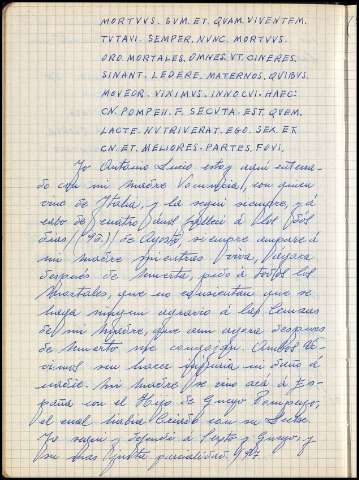 MORTVVS. SVM. ET. QVAM. VIVENTEM.
TVTAVI. SEMPER. NVNC. MORTVVS.
ORO. MORTALES. OMNES. VT. CINERES.
SINANT. LEDERE. MATERNOS. QVIBVS.
MOVEOR. VIXIMVS. INNOCVI. HAEC.
CN. POMPEII. F. SECVTA. EST. QVEM.
LACTE. NVTRIVERAT. EGO. SEX. ET
CN. ET. MELIORES. PARTES. FOVI.
Yo Antonio Lucio estoy aqui enterra-
do con mi Madre con quien
vine de Italia, y la segui siempre, y á
cabo de quatro falleció á los dos
dias (192) de Agosto, siempre amparé á
mi Madre mientras viva, y agora
despues de muerto, pido á todos los
mortales, que no consientan que se
haga ningun agravio á las cenizas
de mi Madre, que aun agora despues
de muerto me congojan. Ambos vi-
vimos sin hacer injuria ni daño á
nadie. Mi Madre se vino acá á Es-
paña con el Hijo de Gneyo Pompeyo,
el cual habia criado con su Leche.
Yo segui y defendí á Sexto y Gneyo, y
su mas justa parcialidad.